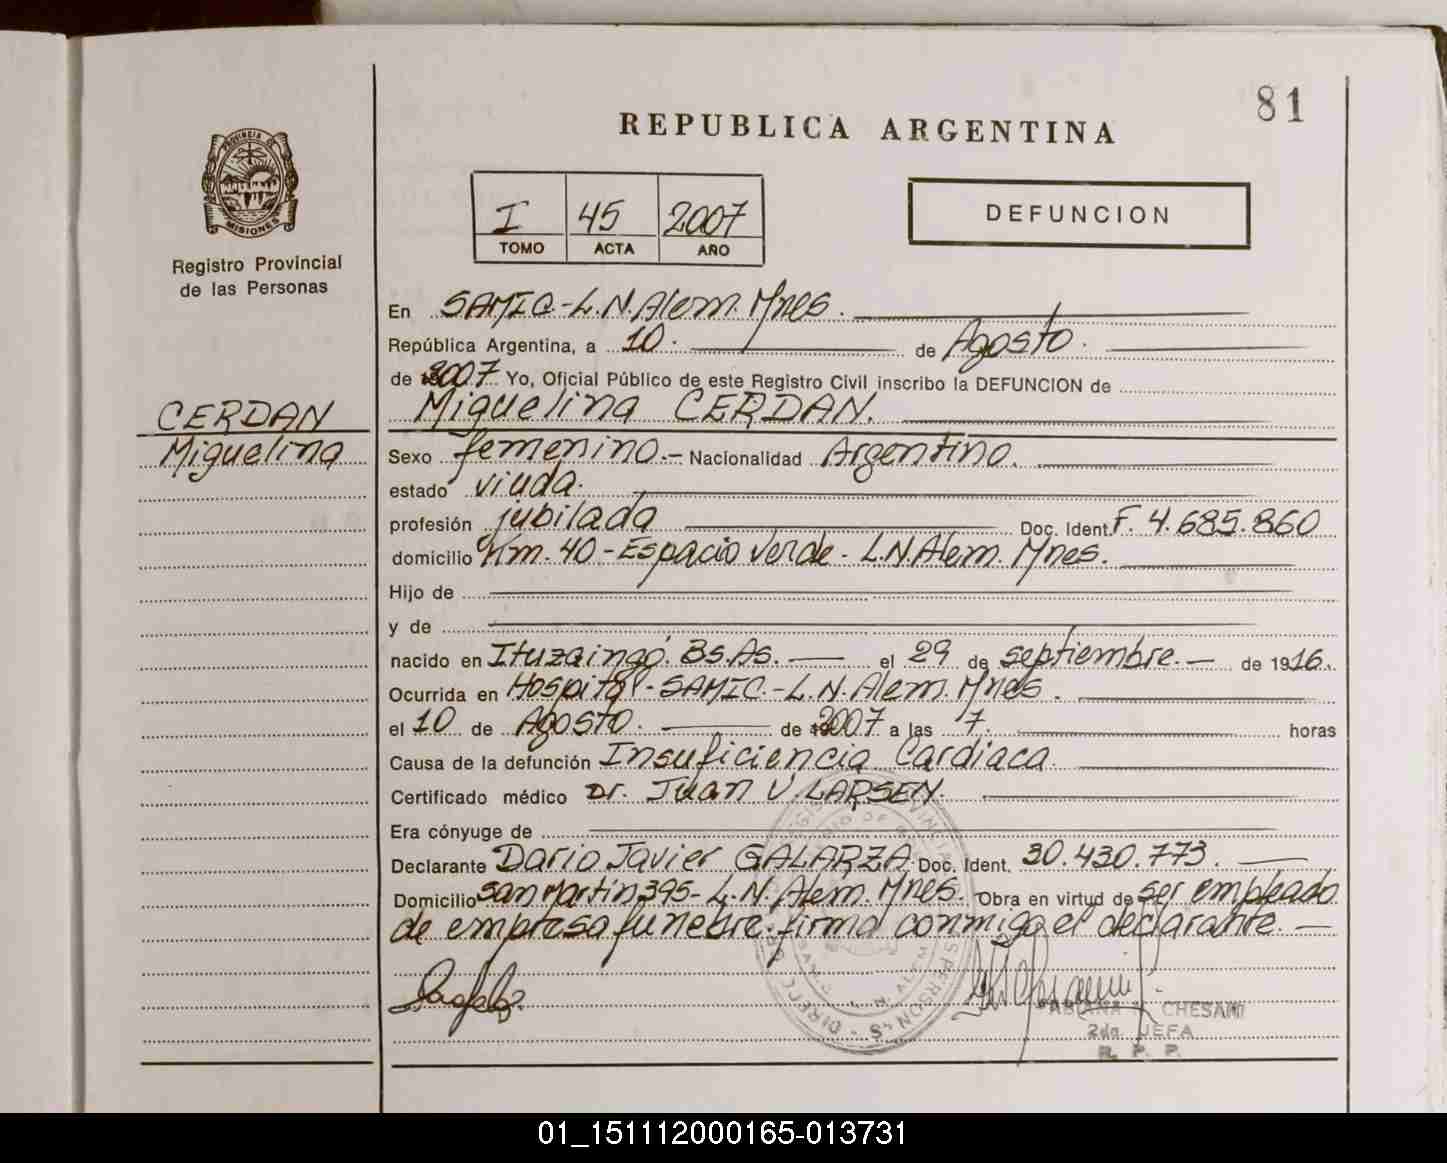 81
REPUBLICA ARGENTINA
PROVINCIA DE
MISIONES
Registro Provincial
de las Personas
I 45 2007
TOMO ACTA AÑO
DEFUNCION
En SAMIC-L.N.Alem. Mnes.
República Argentina, a 10. de Agosto.
de 2007 Yo, Oficial Público de este Registro Civil inscribo la DEFUNCION de
CERDAN
Miguelina
Miguelina CERDAN.
Sexo femenino.- Nacionalidad Argentino.
estado viuda.
profesión jubilada Doc. Ident. F. 4.685.860
domicilio Km. 40 - Espacio Verde - L.N.Alem. Mnes.
Hijo de
y de
nacido en Ituzaingó. Bs.As. — el 29 de septiembre. — de 1916.
Ocurrida en Hospital - SAMIC.-L.N.Alem. Mnes.
el 10 de Agosto. de 2007 a las 7. horas
Causa de la defunción Insuficiencia Cardiaca.
Certificado médico Dr. Juan V. LARSEN.
Era cónyuge de
Declarante Dario Javier GALARZA. Doc. Ident. 30.430.773.
Domicilio San Martin 395- L.N. Alem. Mnes. Obra en virtud de ser empleado
de empresa funebre. firma conmigo el declarante. —
CHESANI
2da. JEFA
R. P. P.
01_151112000165-013731